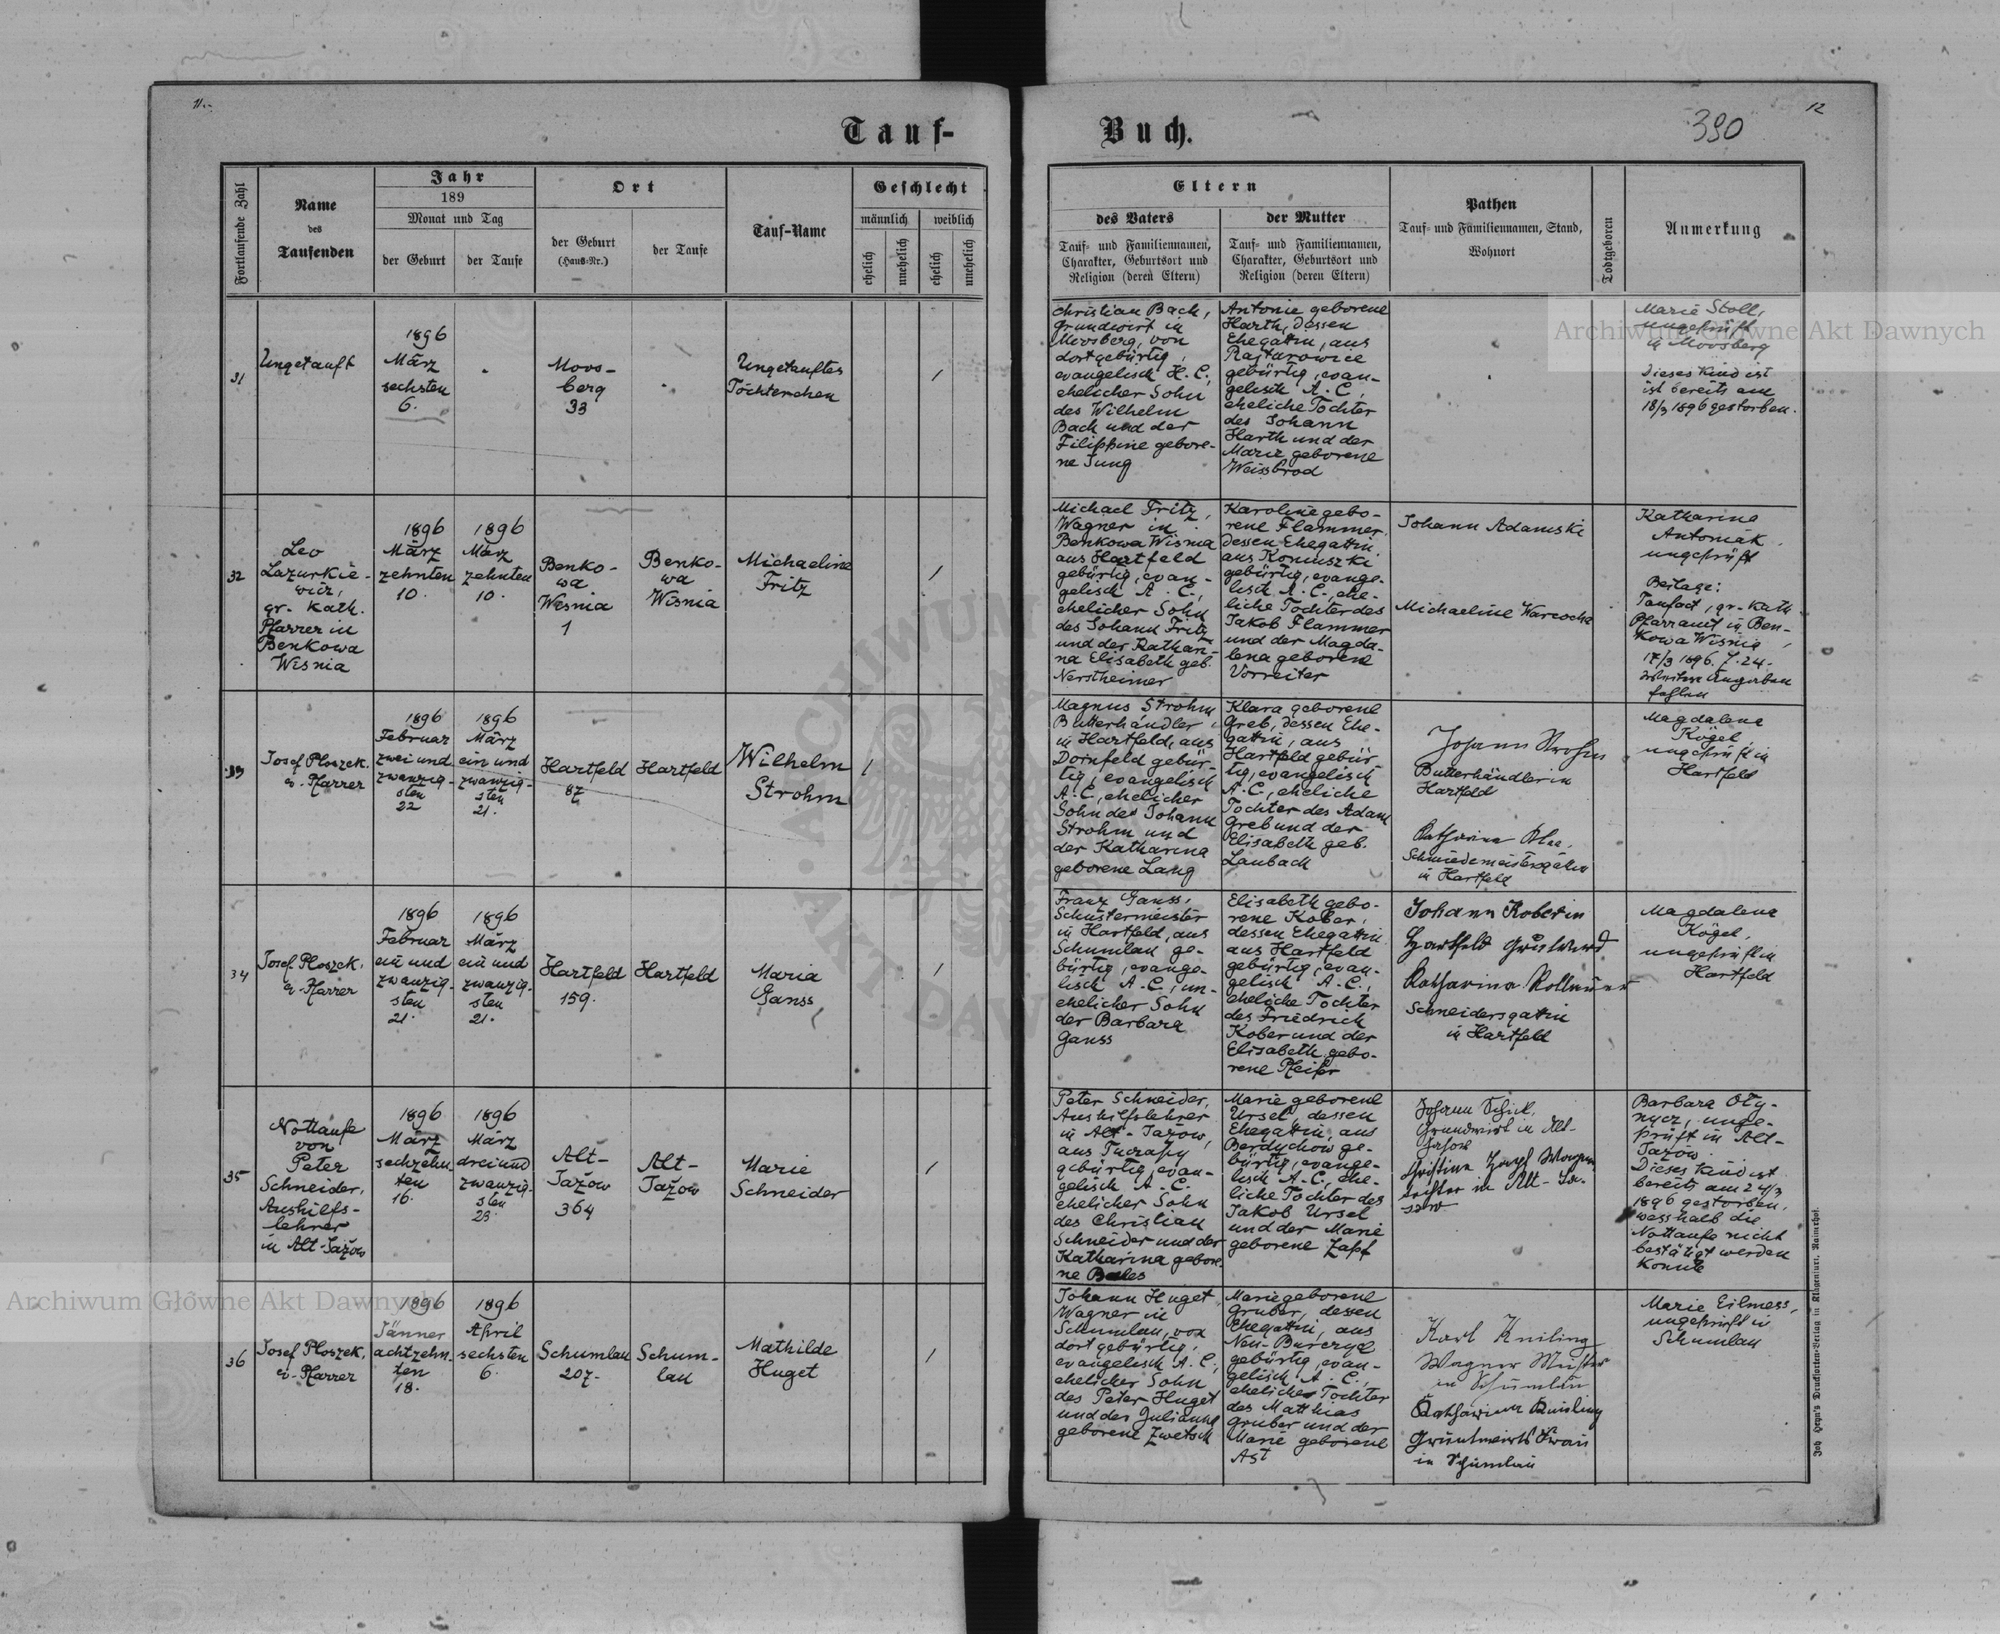 11.
12
390
Tauf-
Buch.
Fortlaufende Zahl
Name
des
Taufenden
Jahr
189
Monat und Tag
der Geburt
der Taufe
Ort
der Geburt
(Haus-Nr.)
der Taufe
Tauf-Name
Geschlecht
männlich
weiblich
ehelich
unehelich
ehelich
unehelich
Eltern
des Vaters
Tauf- und Familiennamen,
Charakter, Geburtsort und
Religion (deren Eltern)
der Mutter
Tauf- und Familiennamen,
Charakter, Geburtsort und
Religion (deren Eltern)
Pathen
Tauf- und Familiennamen, Stand,
Wohnort
Todtgeboren
Anmerkung
31
Ungetauft
1896
März
sechsten
6.
Moos-
berg
33
Ungetauftes
Töchterchen
/
Christian Bach,
Grundwirt in
Moosberg, von
dort gebürtig,
evangelisch H.C.,
ehelicher Sohn
des Wilhelm
Bach und der
Filippine gebore-
ne Jung
Antonie geborene
Harth, dessen
Ehegattin, aus
Rajtarowice
gebürtig, evan-
gelisch A.C.,
eheliche Tochter
des Johann
Harth und der
Marie geborene
Weissbrod
Marie Stoll,
ungeprüft
in Moosberg
Dieses Kind ist
ist bereits am
18/3 1896 gestorben.
32
Leo
Lazurkie-
wicz,
gr. kath.
Pfarrer in
Benkowa
Wisnia
1896
März
zehnten
10.
1896
März
zehnten
10.
Benko-
wa
Wisnia
1
Benko-
wa
Wisnia
Michaeline
Fritz
/
Michael Fritz,
Wagner in
Benkowa Wisnia
aus Hartfeld
gebürtig, evan-
gelisch A.C.,
ehelicher Sohn
des Johann Fritz
und der Kathari-
na Elisabeth geb.
Nerstheimer
Karoline gebo-
rene Flammer
dessen Ehegattin
aus Koniuszki
gebürtig, evange-
lisch A.C., ehe-
liche Tochter des
Jakob Flammer
und der Magda-
lena geborene
Vorreiter
Johann Adamski
Michaeline Warcocha
Katharina
Antoniak,
ungeprüft
Beilage:
Taufact, gr-kath
Pfarramt in Ben-
kowa Wisnia,
17/3 1896. Z. 24.
Angaben
fehlen
33
Josef Ploszek,
ev. Pfarrer
1896
Februar
zwei und
zwanzig-
sten
22
1896
März
ein und
zwanzig-
sten
21.
Hartfeld
87
Hartfeld
Wilhelm
Strohm
/
Magnus Strohm
Butterhändler
in Hartfeld, aus
Dornfeld gebür-
tig, evangelisch
A.C., ehelicher
Sohn des Johann
Strohm und
der Katharina
geborene Lang
Klara geborene
Greb, dessen Ehe-
gattin, aus
Hartfeld gebür-
tig, evangelisch
A.C., eheliche
Tochter des Adam
Greb und der
Elisabeth geb.
Laubach
Johann Strohm
Butterhändler in
Hartfeld
Katharina
Schmiedemeistersgattin
in Hartfeld
Magdalena
Kögel,
ungeprüft in
Hartfeld
34
Josef Ploszek,
ev. Pfarrer
1896
Februar
ein und
zwanzig-
sten
21.
1896
März
ein und
zwanzig-
sten
21.
Hartfeld
159.
Hartfeld
Maria
Ganss
/
Franz Ganss,
Schustermeister
in Hartfeld, aus
Schumlau ge-
bürtig, evange-
lisch A.C., un-
ehelicher Sohn
der Barbara
Ganss
Elisabeth gebo-
rene Kober,
dessen Ehegattin
aus Hartfeld
gebürtig, evan-
gelisch A.C.,
eheliche Tochter
des Friedrich
Kober und der
Elisabeth gebo-
rene Pfeifer
Johann Kober in
Hartfeld
Katharina
Schneidersgattin
in Hartfeld
Magdalena
Kögel,
ungeprüft in
Hartfeld
35
Nottaufe
von
Peter
Schneider,
Aushilfs-
lehrer
in Alt-Jažow
1896
März
sechzehn-
ten
16.
1896
März
drei und
zwanzig-
sten
23.
Alt-
Jažow
364
Alt-
Jažow
Marie
Schneider
/
Peter Schneider,
Aushilfslehrer
in Alt-Jažow,
aus
gebürtig, evan-
gelisch A.C.
ehelicher Sohn
des Christian
Schneider und der
Katharina gebore-
ne Bales
Marie geborene
Ursel, dessen
Ehegattin, aus
Berdychow ge-
bürtig, evange-
lisch A.C., ehe-
liche Tochter des
Jakob Ursel
und der Marie
geborene Zapf
Johann Schick,
Grundwirt in Alt-
Jažow
Christine Zapf
in Alt-
Barbara Oly-
nycz, unge-
prüft in Alt-
Jažow.
Dieses Kind ist
bereits am 24/3
1896 gestorben,
wesshalb die
Nottaufe nicht
bestätigt werden
konnte
36
Josef Ploszek,
ev. Pfarrer
1896
Jänner
achtzehn-
ten
18.
1896
April
sechsten
6.
Schumlau
207.
Schum-
lau
Mathilde
Huget
/
Johann Huget
Wagner in
Schumlau, von
dort gebürtig,
evangelisch A.C.,
ehelicher Sohn
des Peter Huget
und der Julianna
geborene Zwetsch
Marie geborene
Gruber, dessen
Ehegattin, aus
Neu-Burczyce
gebürtig, evan-
gelisch A.C.,
eheliche Tochter
des Matthias
Gruber und der
Marie geborene
Ast
Karl Kniling
Wagner Meister
in Schumlau
Katharina Kniling
Grundwirts Frau
in Schumlau
Marie Eilmess,
ungeprüft in
Schumlau
Joh. Heyn's Drucksorten-Verlag in Klagenfurt, Rainerhof.
Archiwum Główne Akt Dawnych
Archiwum Główne Akt Dawnych